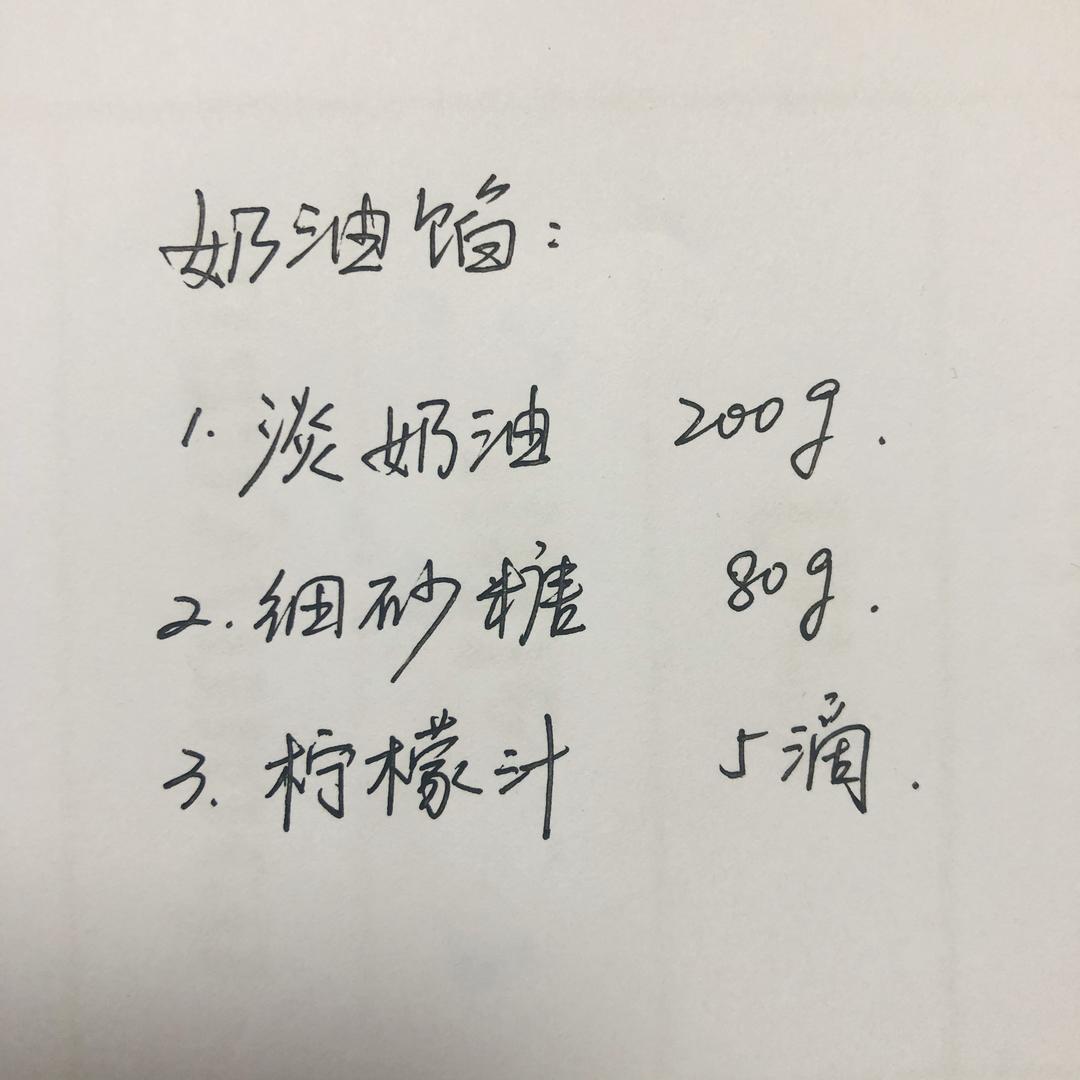 奶油馅：
1. 淡奶油 200g.
2. 细砂糖 80g.
3. 柠檬汁 5滴.